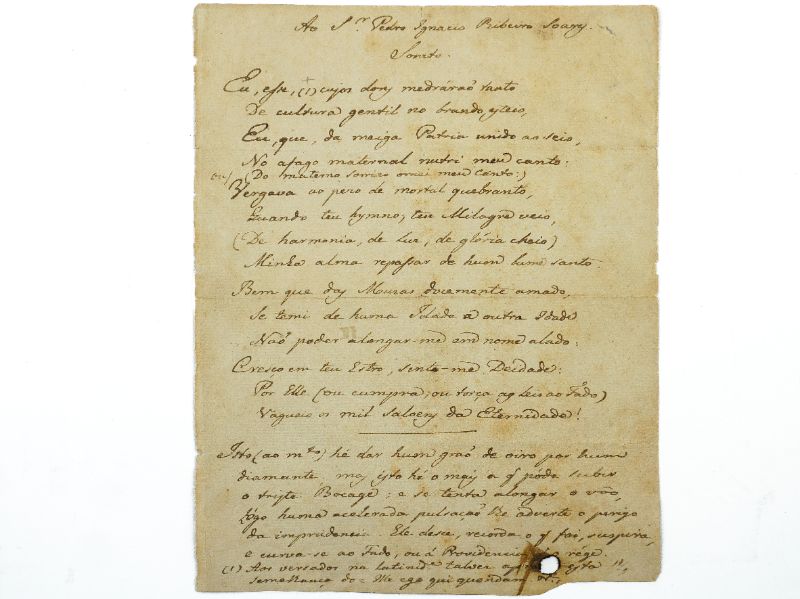 Ao S.r Pedro Ignacio Ribeiro Soares.
Soneto.
Eu, esse, (1) cujos dons medrárão tanto
De cultura gentil no brando esteio,
Eu, que, da meiga Patria unido ao seio,
No afago maternal nutri meu canto:
ou/ (Do materno sorriso ornei meu canto:)
Vergava ao pezo de mortal quebranto,
Quando teu hymno, teu Milagre veio,
(De harmonia, de luz, de glória cheio)
Minha alma repassar de hum lume santo:
Bem que das Musas docemente amado,
Se temi de huma Idade a outra Idade
Naõ poder alongar-me em nome alado:
Cresço em teu Estro, sinto-me Deidade:
Por Elle (ou cumpra, ou torça as leis ao Fado)
Vagueio os mil saloens da Eternidade!
Isto (ao m.to) hé dar hum graõ de oiro por hum
diamante, mas isto hé o mais a q̃ póde subir
o triste Bocage: e se tenta alongar o vôo,
lógo huma acelerada pulsaçaõ lhe adverte o perigo
da imprudencia. Elle desce, recorda o q̃ foi, suspira,
e curva-se ao Fado, ou á Providencia rege.
(1) Aos versados na latinid.e talvez esta
semelhança do = Ille ego qui quondam